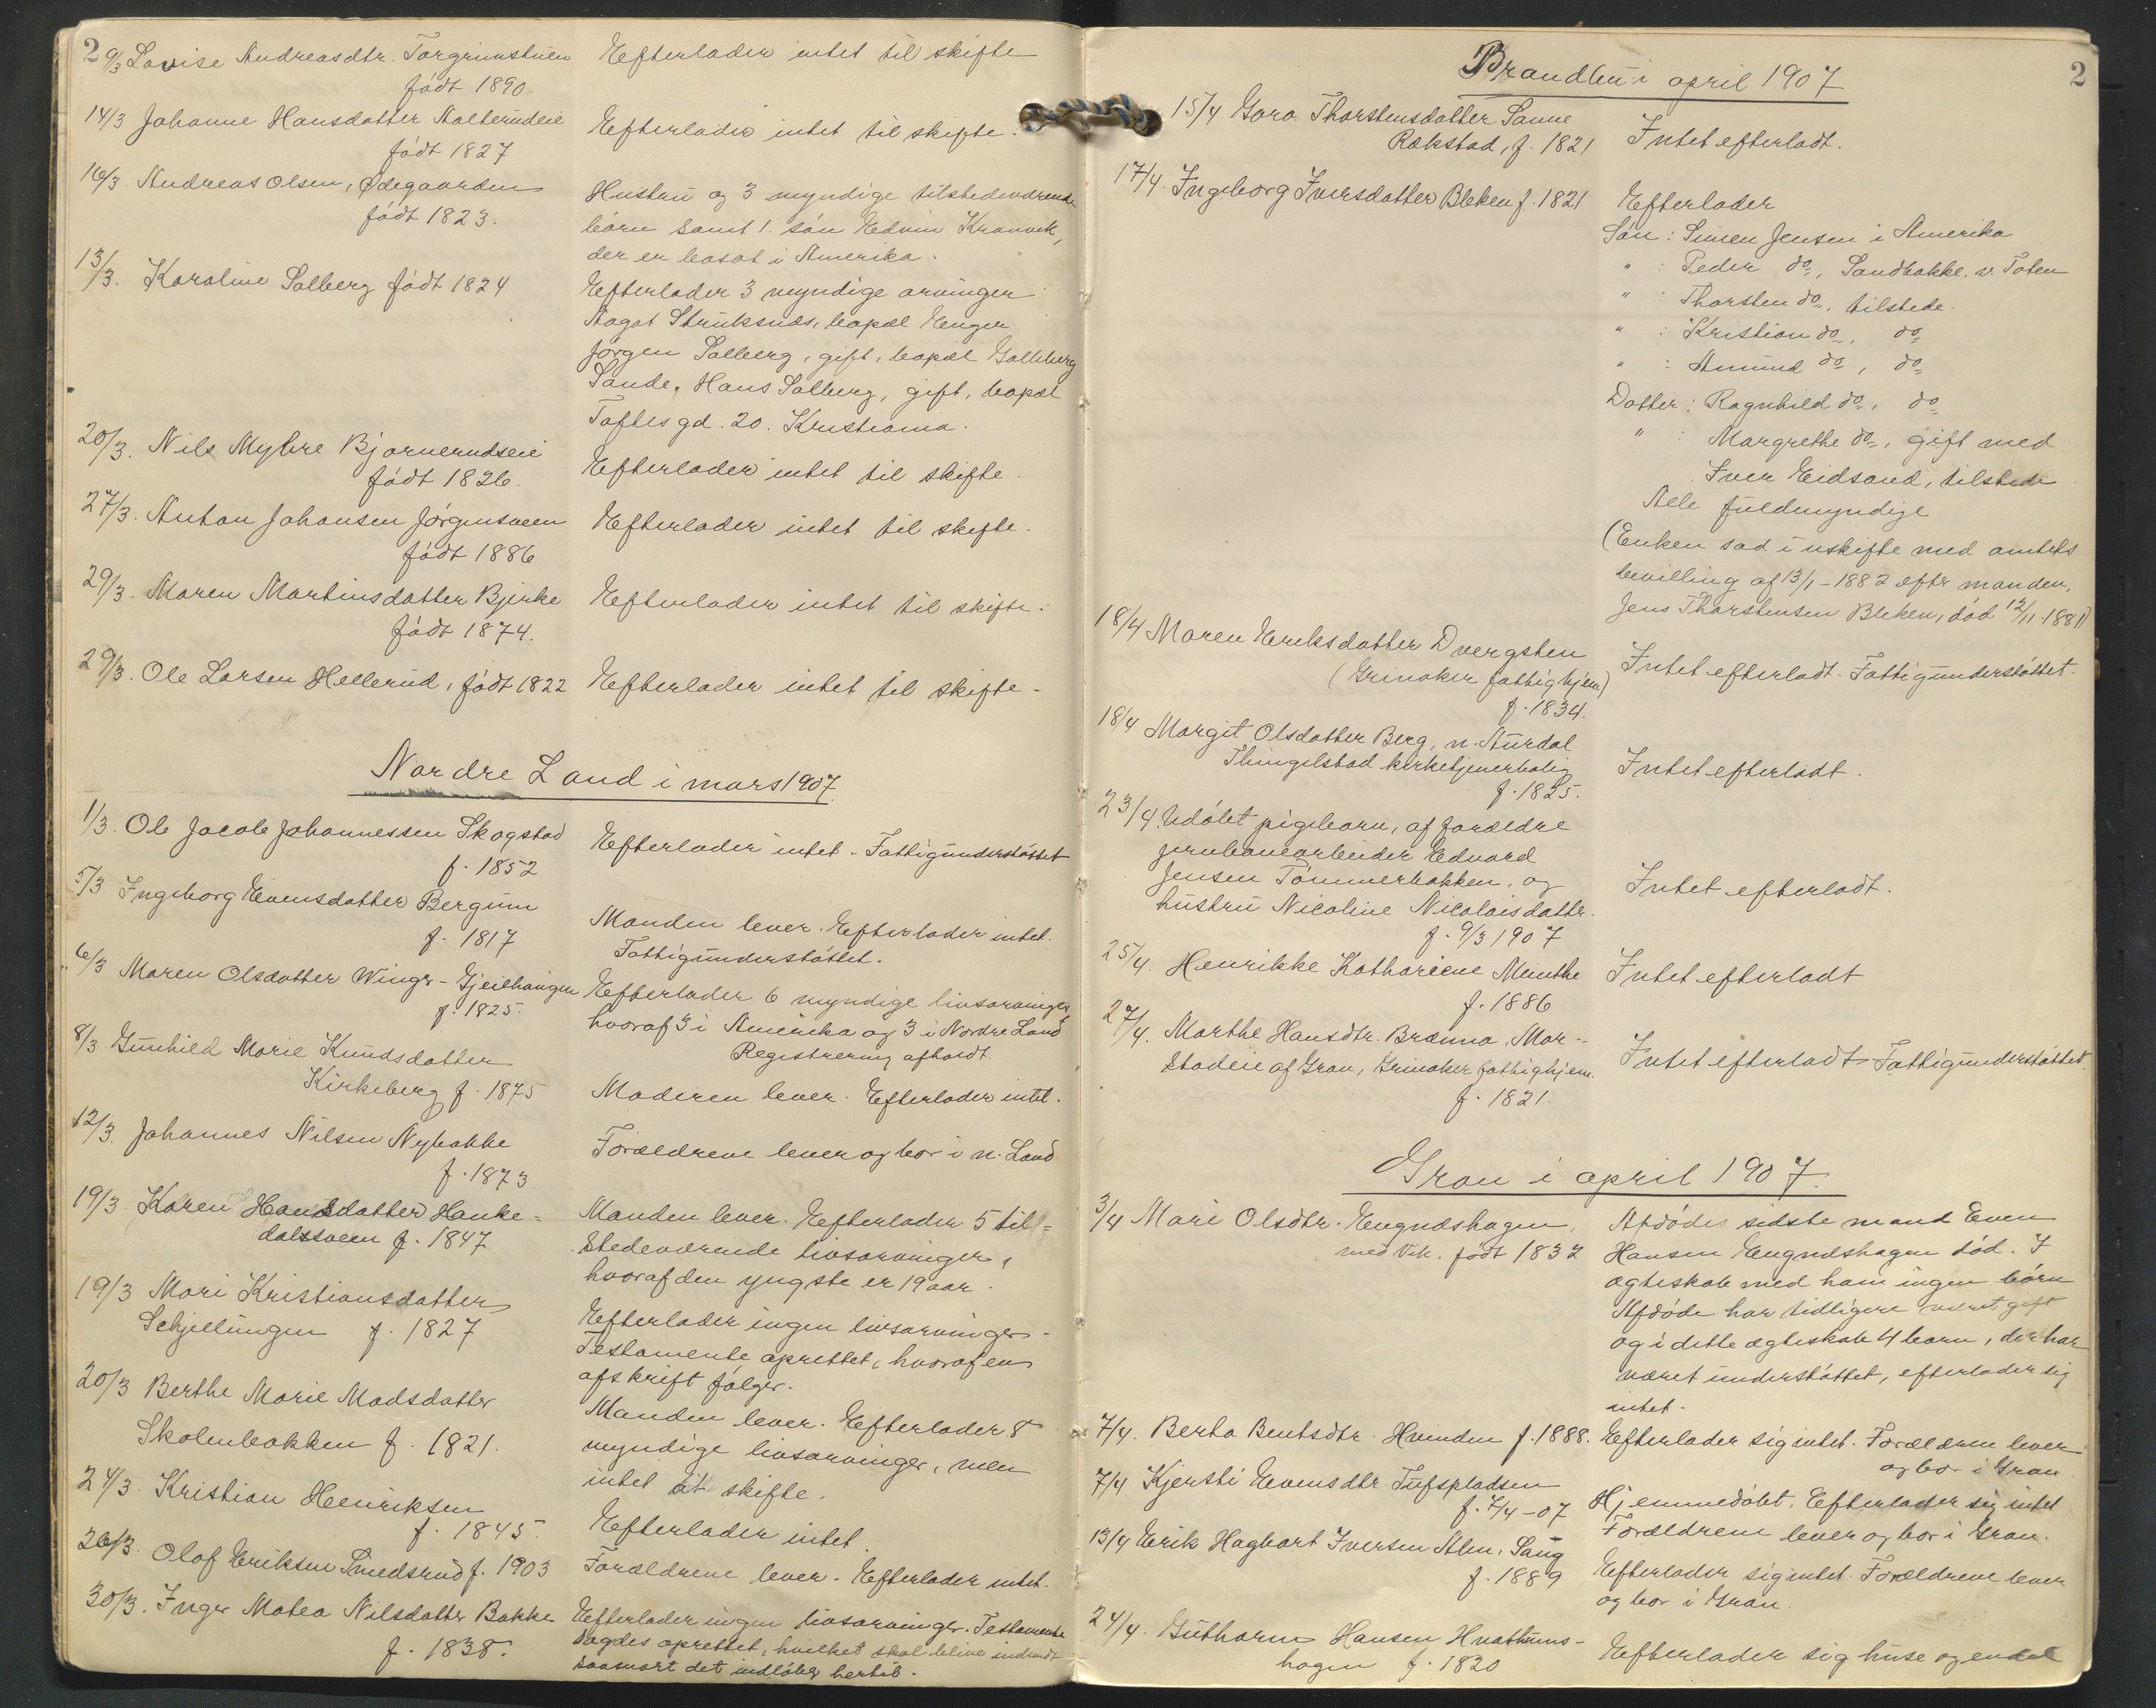 2
9/3 Lovise Andreasdtr. Torgrimstuen
født 1890
Efterlader intet til skifte
14/3 Johanne Hansdatter
født 1827
Efterlader intet til skifte.
16/3. Andreas Olsen, Ødegaarden
født 1823.
Hustru og 3 myndige tilstedeværende
børn samt 1 søn Edvin
der er bosat i Amerika.
13/3. Karoline Solberg født 1824
Efterlader 3 myndige arvinger:
Aagot Struksnæs, bopæl Enger
Jørgen Solberg, gift, bopæl
Sande, Hans Solberg, gift, bopæl
Toftes gd. 20. Kristiania.
20/3. Nils Myhre Bjørnerudseie
født 1826.
Efterlader intet til skifte.
27/3. Anton Johansen Jørgensveen
født 1886
Efterlader intet til skifte.
29/3. Maren Martinsdatter Bjerke
født 1874.
Efterlader intet til skifte.
29/3. Ole Larsen Hellerud, født 1822
Efterlader intet til skifte.
Nordre Land i mars 1907.
1/3. Ole Jacob Johannessen Skogstad
f. 1852
Efterlader intet. Fattigunderstøttet
5/3 Ingeborg Evensdatter Bergum
f. 1817
Manden lever. Efterlader intet.
Fattigunderstøttet.
6/3 Maren Olsdatter Wings-Gjeilhaugen
f. 1825.
Efterlader 6 myndige livsarvinger,
hvoraf 3 i Amerika og 3 i Nordre Land
Registrering afholdt.
8/3 Gunhild Marie Knudsdatter
Kirkeberg f. 1875
Moderen lever. Efterlader intet.
12/3. Johannes Nilsen Nybakke
f. 1873
Forældrene lever og bor i n. Land
19/3. Karen Hansdatter Hanke=
dalssveen f. 1847
Manden lever. Efterlader 5 til=
stedeværende livsarvinger,
hvoraf den yngste er 19 aar.
19/3 Mari Kristiansdatter
Schjellingen f. 1827
Efterlader ingen livsarvinger.
Testamente oprettet, hvoraf en
afskrift følger.
20/3 Berthe Marie Madsdatter
Skolenbakken f. 1821.
Manden lever. Efterlader 8
myndige livsarvinger, men
intet at skifte.
24/3. Kristian Henriksen
f. 1845.
Efterlader intet.
26/3. Olaf Eriksen Smedsrud f. 1903
Forældrene lever. Efterlader intet.
30/3. Inger Matea Nilsdatter Bakke
f. 1838.
Efterlader ingen livsarvinger. Testamente
sagdes oprettet, hvilket skal blive indsendt
saasnart det indløber hertil.
2
Brandbu i april 1907
15/4 Goro Thorstensdatter Sanne
Rækstad, f. 1821
Intet efterladt.
17/4. Ingeborg Iversdatter Bleken f. 1821
Efterlader
Søn: Simen Jensen i Amerika
" : Peder do, Sandbakke, v. Toten
" : Thorsten do, tilstede.
" : Kristian do, do
" : Amund do, do
Datter: Ragnhild do, do
" : Margrethe do, gift med
Iver Eidsand, tilstede
Alle fuldmyndige
(Enken sad i uskifte med amtets
bevilling af 13/1-1882 efter manden,
Jens Thorstensen Bleken, død 12/11-1881)
18/4 Maren Eriksdatter Dvergsten
(Grinaker fattighjem)
f. 1834.
Intet efterladt. Fattigunderstøttet.
18/4 Margit Olsdatter Berg, n. Aurdal
Thingelstad kirketjenerbolig
f. 1825.
Intet efterladt.
23/4. Udøbt pigebarn, af forældre
jernbanearbeider Edvard
Jensen Tømmerbakken, og
hustru Nicoline Nicolaisdatter.
f. 9/3 1907
Intet efterladt.
25/4. Henrikke Katharine Munthe
f. 1886
Intet efterladt
27/4. Marthe Hansdtr. Brænna, Mor-
stadeie af Gran, Grinaker fattighjem.
f. 1821.
Intet efterladt. Fattigunderstøttet.
Gran i april 1907.
3/4 Mari Olsdtr. Engnæshagen,
med Vik. født 1832
Afdødes sidste mand Even
Hansen Engnæshagen død. I
ægteskab med ham ingen børn
Afdøde har tidligere været gift
og i dette ægteskab 4 barn, der har
været understøttet, efterlader sig
intet.
7/4. Berta Bentsdtr. Hvinden f. 1888.
Efterlader sig intet. Forældrene lever
og bor i Gran.
7/4 Kjersti Evensdtr. Tufspladsen
f. 7/4-07
Hjemmedøbt. Efterlader sig intet
Forældrene lever og bor i Gran.
13/4 Erik Hagbart Iversen Alm, Saug
f. 1889
Efterlader sig intet. Forældrene lever
og bor i Gran.
24/4. Guthorm Hansen Hvattums-
hagen f. 1820
Efterlader sig huse og endel